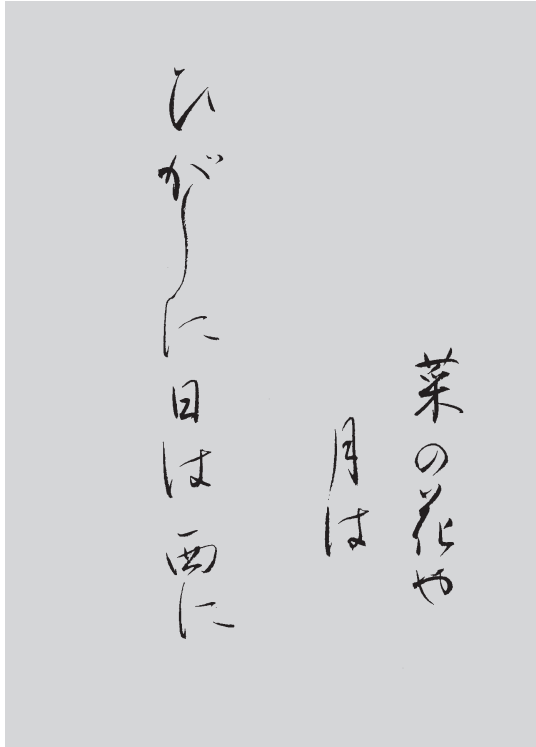 菜の花や
月は
ひがしに日は西に